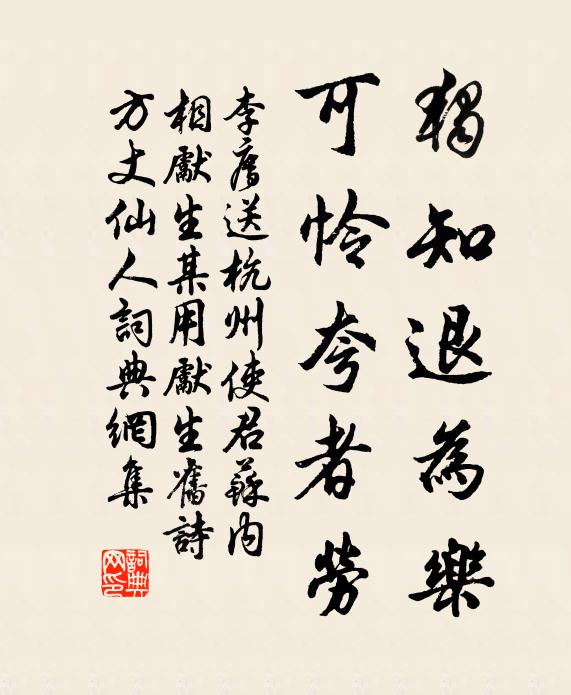 獨知退為樂
可憐夸者勞
李廌送杭州使君蘇內
相獻生某用獻生舊詩
方丈仙人詞典網集
詞典網印